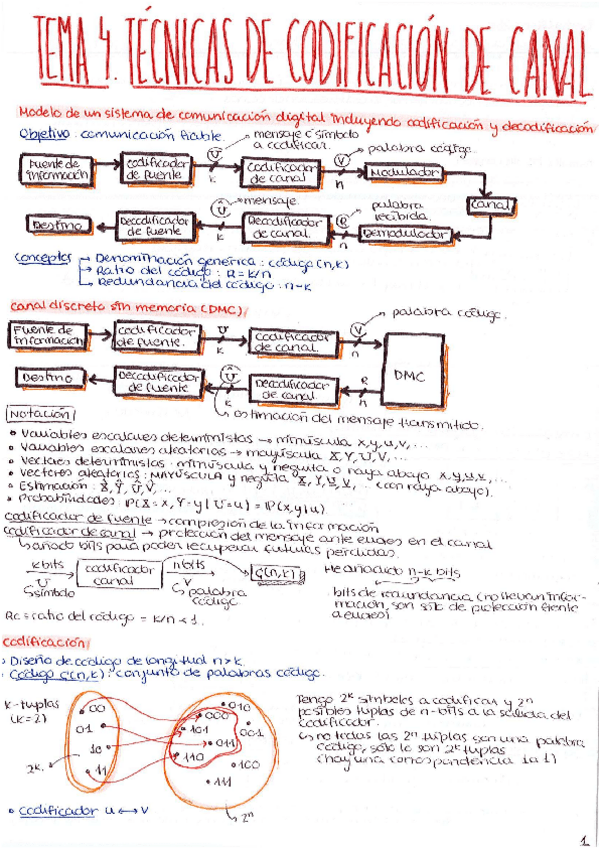 TEMA 4. TÉCNICAS DE CODIFICACIÓN DE CANAL
Modelo de un sistema de comunicación digital incluyendo codificación y decodificación
Objetivo: comunicación fiable.
mensaje o símbolo a codificar.
palabra código.
Fuente de información
codificador de fuente
U
k
codificador de canal
V
n
Modulador
Canal
Destino
Decodificador de fuente
Û
k
mensaje.
Decodificador de canal
R
n
palabra recibida.
Demodulador
Conceptos → Denominación genérica: código (n,k)
→ Ratio del código: R = k/n
↳ Redundancia del código: n-k
canal discreto sin memoria (DMC)
palabra código.
Fuente de información
codificador de fuente.
U
k
codificador de canal.
V
n
DMC
Destino
Decodificador de fuente
Û
k
Decodificador de canal.
R
n
↳ estimación del mensaje transmitido.
Notación
• Variables escalares deterministas → minúscula x,y,u,v,...
• Variables escalares aleatorias → mayúscula X,Y,U,V,...
• Vectores deterministas: minúscula y negrita o raya abajo x,y,u,v,...
• Vectores aleatorios: MAYÚSCULA y negrita X,Y,U,V,... (con raya abajo).
• Estimación: X̂,Ŷ,Û,V̂...
• Probabilidades: P(X=x, Y=y | U=u) = P(x,y|u)
codificador de fuente → compresión de la información
codificador de canal → protección del mensaje ante errores en el canal
↳ añado bits para poder recuperar futuras pérdidas.
k bits
U
↳ símbolo
codificador canal
n bits
V
↳ palabra código
C(n,k)
He añadido n-k bits
bits de redundancia (no llevan información, son sólo de protección frente a errores)
Rc = ratio del código = k/n < 1.
codificación
• Diseño de código de longitud n>k.
• Código C(n,k): conjunto de palabras código.
k-tuplas
(k=2)
00
01
10
11
2ᵏ
000
010
101
001
011
110
100
111
2ⁿ
Tengo 2ᵏ símbolos a codificar y 2ⁿ
posibles tuplas de n-bits a la salida del
codificador.
↳ no todas las 2ⁿ tuplas son una palabra
código, sólo lo son 2ᵏ tuplas
(hay una correspondencia 1 a 1)
• Codificador u ↔ v
1